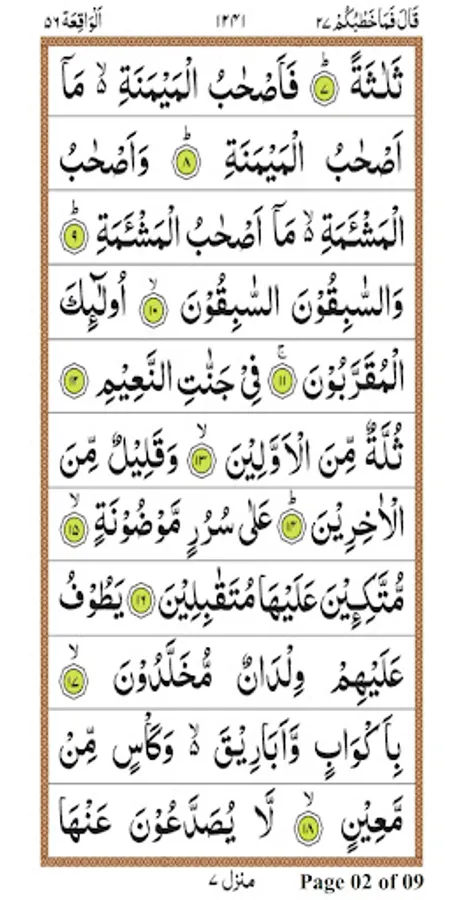 قَالَ فَمَا خَطْبُكُمْ ٢٧ ١٢٤١ اَلْوَاقِعَة ٥٦
ثَلٰثَةً ؕ ﴿٧﴾ فَاَصْحٰبُ الْمَيْمَنَةِ ۙ۬ مَاۤ
اَصْحٰبُ الْمَيْمَنَةِ ؕ ﴿٨﴾ وَاَصْحٰبُ
الْمَشْـَٔمَةِ ۙ۬ مَاۤ اَصْحٰبُ الْمَشْـَٔمَةِ ؕ ﴿٩﴾
وَالسّٰبِقُوْنَ السّٰبِقُوْنَ ۙ ﴿١٠﴾ اُولٰٓئِكَ
الْمُقَرَّبُوْنَ ۚ ﴿١١﴾ فِىْ جَنّٰتِ النَّعِيْمِ ﴿١٢﴾
ثُلَّةٌ مِّنَ الْاَوَّلِيْنَ ۙ ﴿١٣﴾ وَقَلِيْلٌ مِّنَ
الْاٰخِرِيْنَ ؕ ﴿١٤﴾ عَلٰى سُرُرٍ مَّوْضُوْنَةٍ ۙ ﴿١٥﴾
مُّتَّكِـِٕيْنَ عَلَيْهَا مُتَقٰبِلِيْنَ ﴿١٦﴾ يَطُوْفُ
عَلَيْهِمْ وِلْدَانٌ مُّخَلَّدُوْنَ ۙ ﴿١٧﴾
بِاَكْوَابٍ وَّاَبَارِيْقَ ۙ۬ وَكَاْسٍ مِّنْ
مَّعِيْنٍ ۙ ﴿١٨﴾ لَّا يُصَدَّعُوْنَ عَنْهَا
منزل ٧ Page 02 of 09